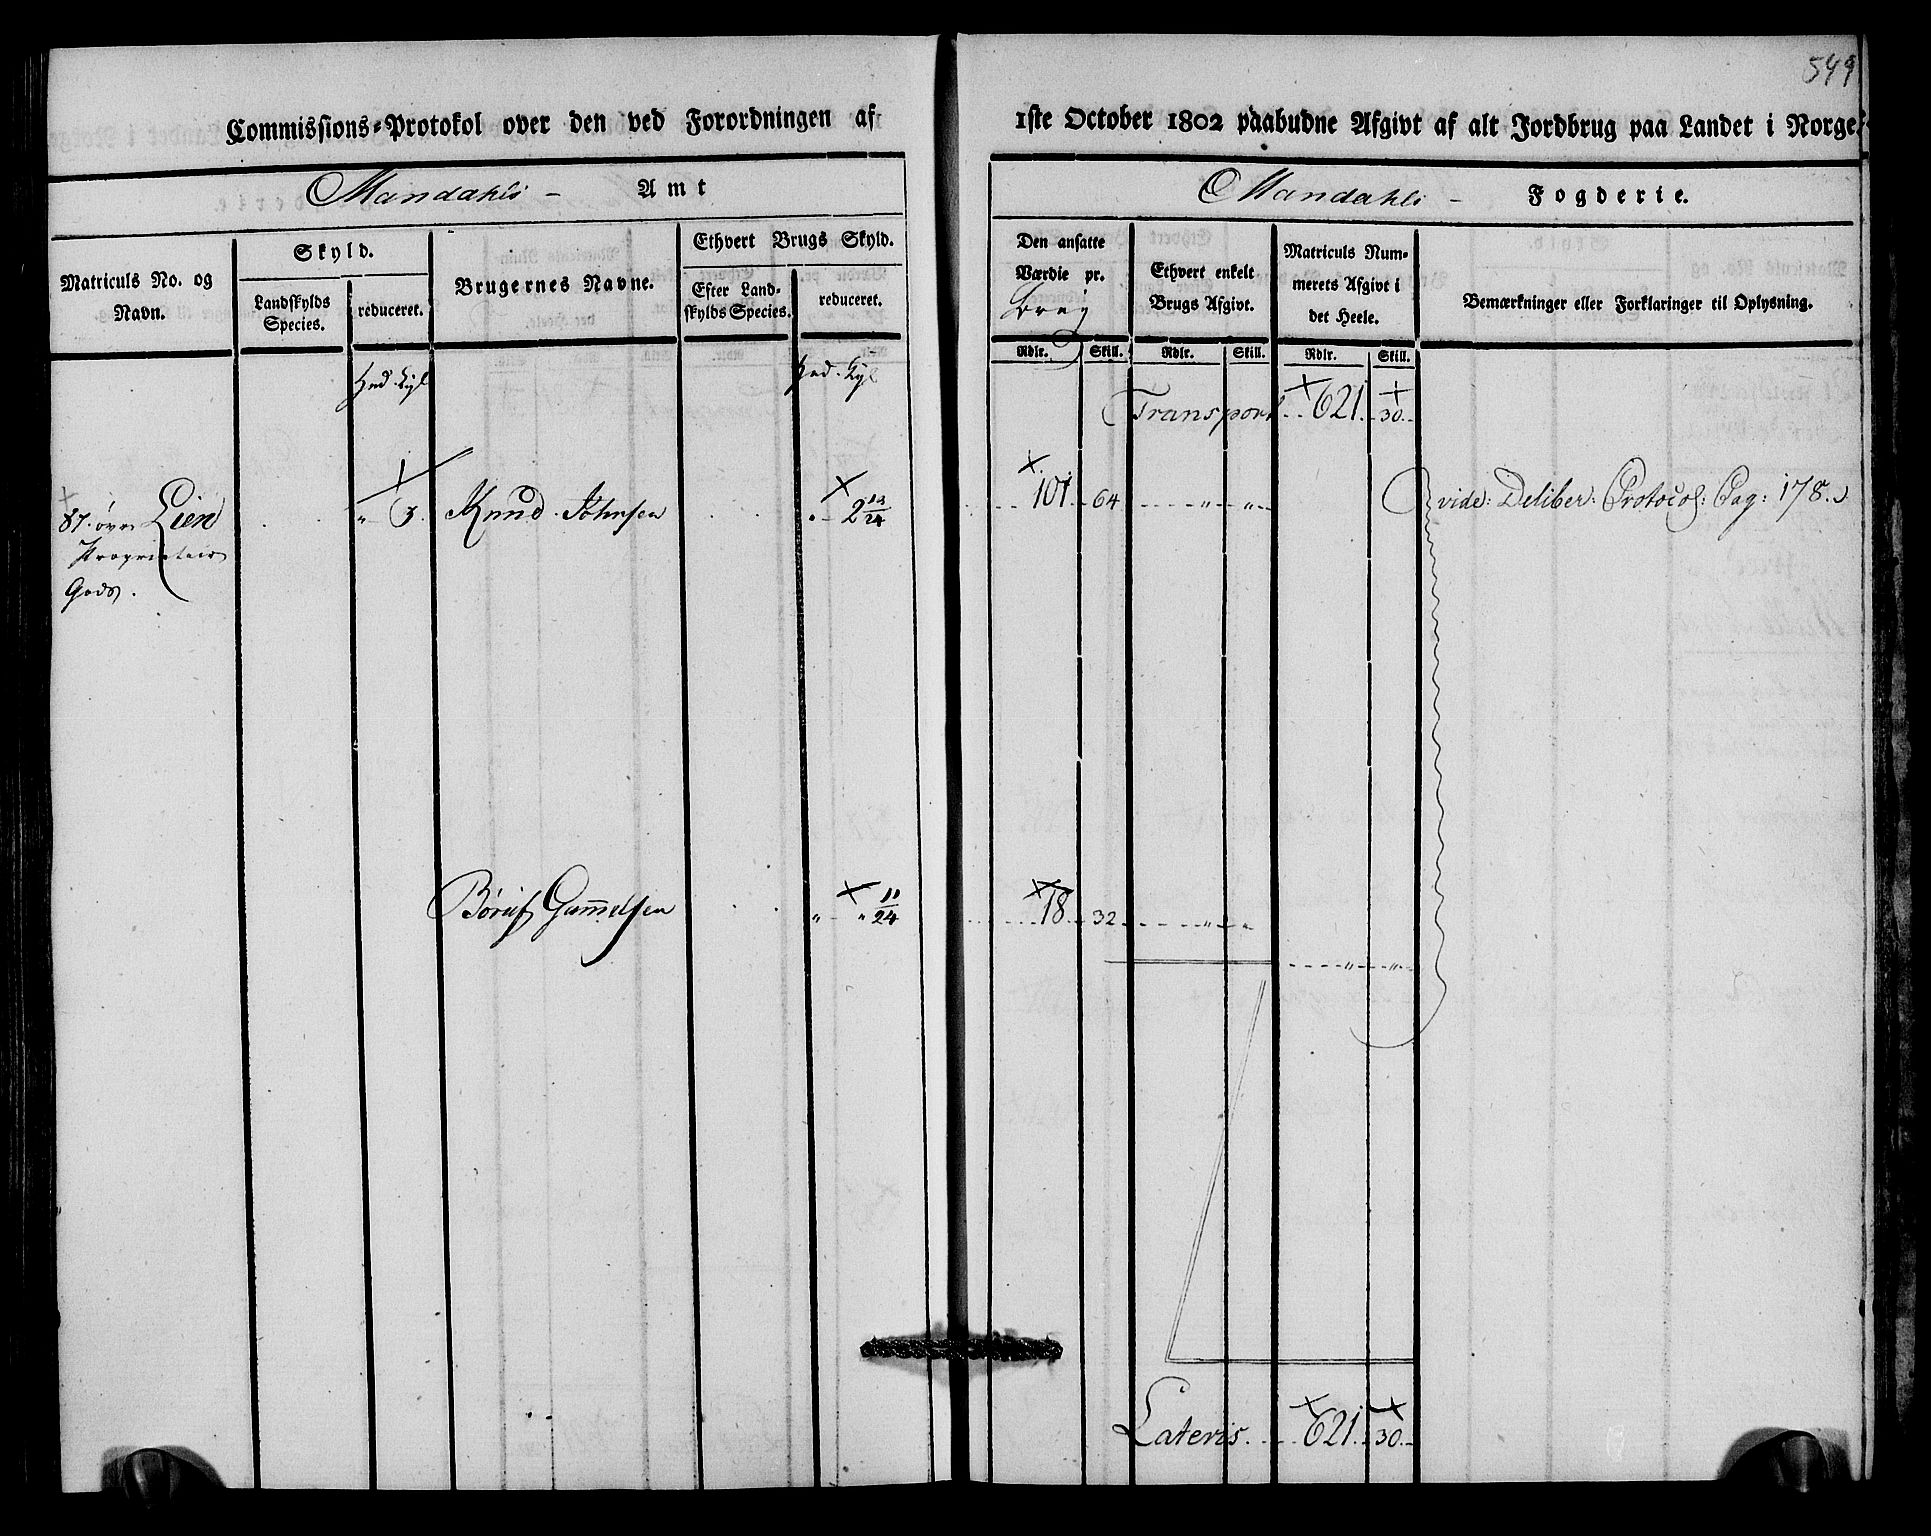 549
Commissions-Protokol over den ved Forordningen af
1ste October 1802 paabudne Afgivt af alt Jordbrug paa Landet i Norge.
Mandahls – Amt
Mandahls – Fogderie.
Matriculs No. og Navn.
Skyld.
Landskylds Species.
reduceret.
Brugernes Navne.
Ethvert Brugs Skyld.
Efter Landskylds Species.
reduceret.
Den ansatte Værdie pr. Brug
Ethvert enkelt Brugs Afgivt.
Matriculs Nummerets Afgivt i det Heele.
Bemærkninger eller Forklaringer til Oplysning.
Rdlr. Skill. Rdlr. Skill. Rdlr. Skill.
Hud. Kyl
Hud. Kyl
Transport 621. 30.
87. øvre Lien " 3. Knud Johnsen " 2 13/24 101 64 " " vide: Deliber: Protocol: Pag: 178.
Proprietair
Gods.
Gunnelsen " " 11/24 18 32 " "
" "
Lateris. 621. 30.